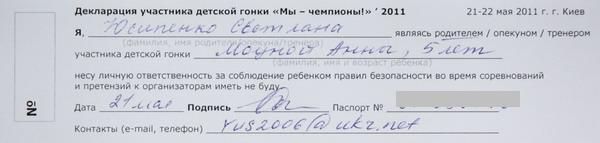 Декларация участника детской гонки «Мы – чемпионы!» ' 2011 21-22 мая 2011 г. г. Киев
Я, Юсипенко Светлана являясь родителем / опекуном / тренером
(фамилия, имя родителя/опекуна/тренера)
участника детской гонки Модной Анны, 5 лет
(фамилия, имя и возраст ребенка)
несу личную ответственность за соблюдение ребенком правил безопасности во время соревнований
и претензий к организаторам иметь не буду.
№ Дата 21 мая Подпись Паспорт №
Контакты (e-mail, телефон) yus2006@ukr.net